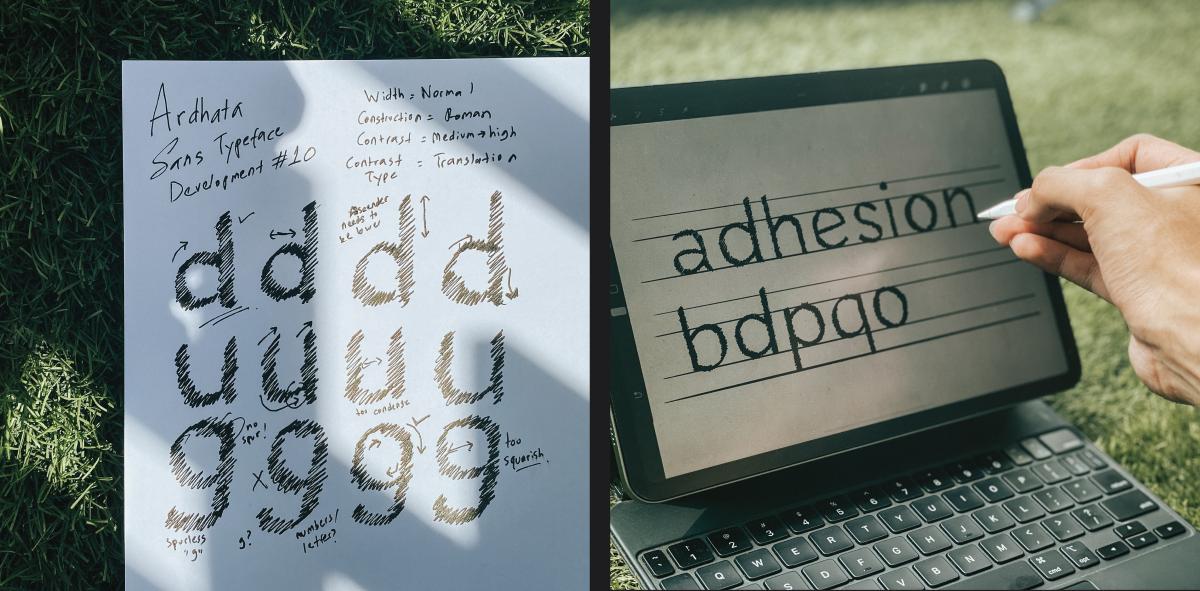 Ardhata
Sans Typeface
Development #10
Width = Normal
Construction = Roman
Contrast = Medium → high
Contrast = Translation
Type
Ascender
needs to
be lower
d d d d
u u u u
too condense
no
spur!
g x g g g
too
squarish
spurless
"g"
g?
numbers/
letter?
adhesion
bdpqo
1 2 3 4 5 6 7 8
Q W E R T Y U I O P
S D F G H J K L
V B N M
cmd opt